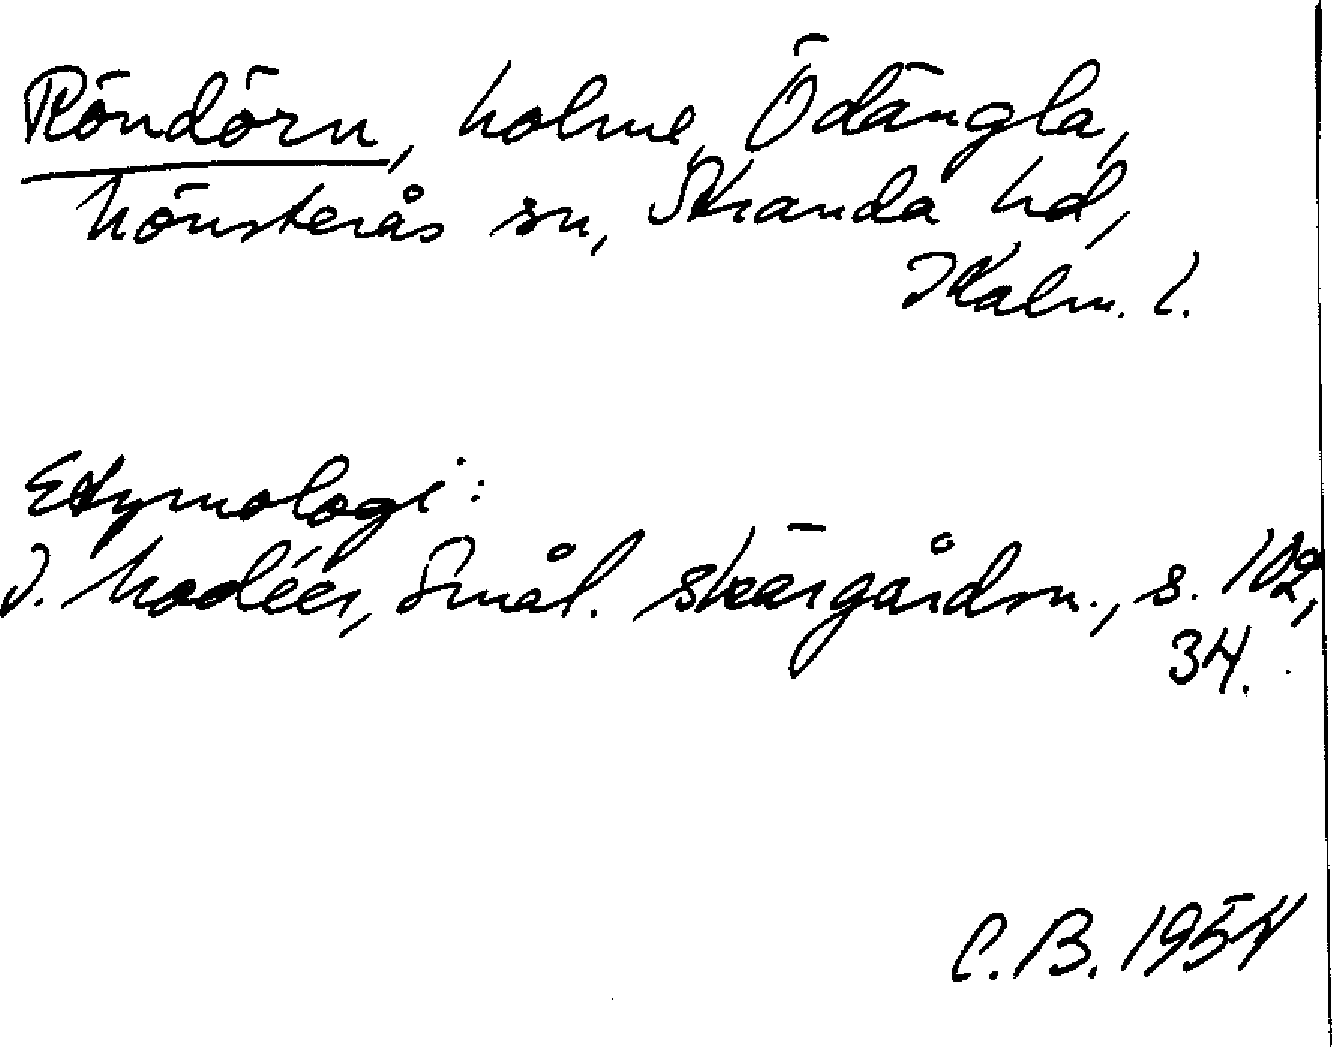 Röndörn, holme, Ödängla,
Mönsterås sn, Stranda hd,
Kalm. l.
Etymologi:
I. Modéer, Smål. skärgårdsn., s. 102,
34.
C.B. 1954